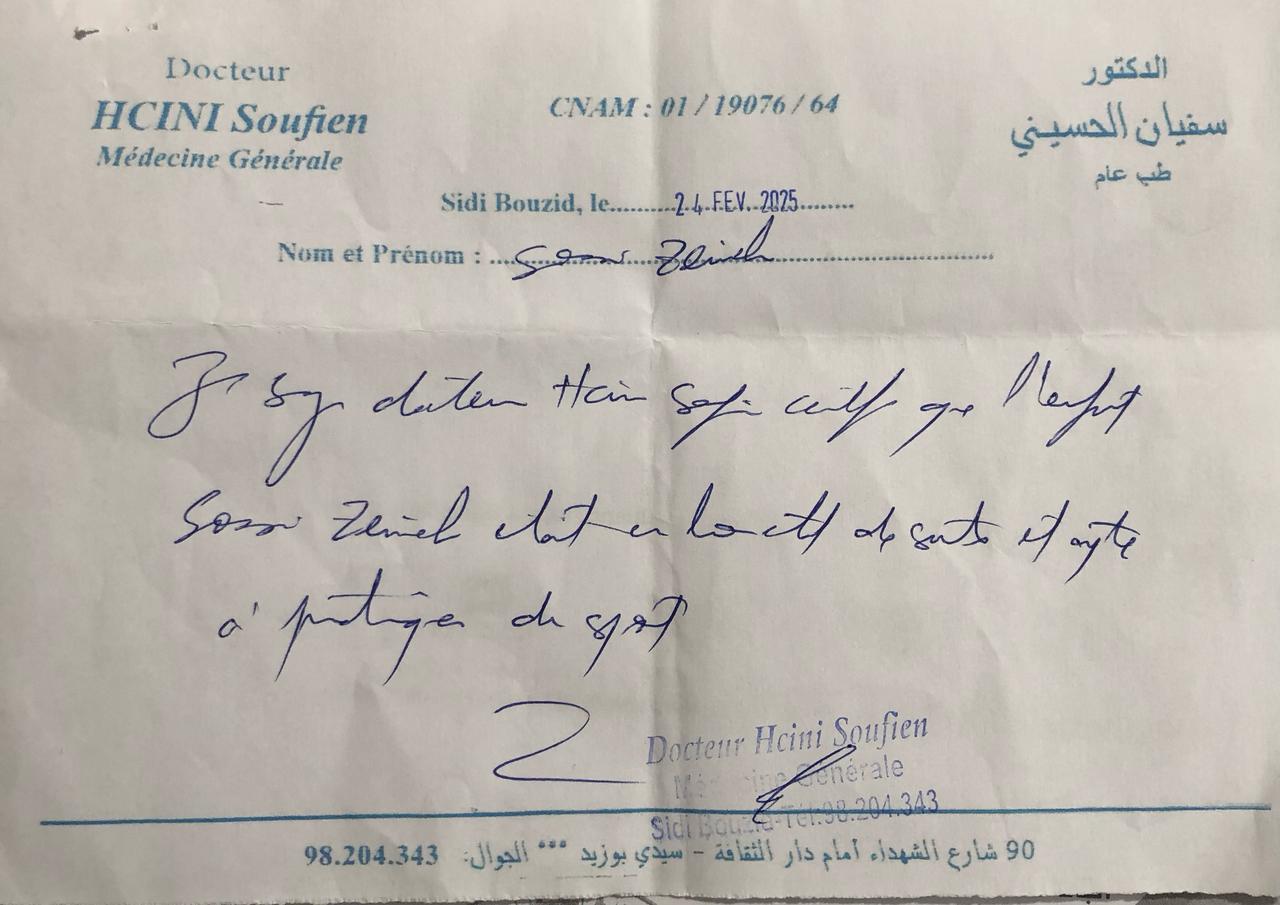 Docteur
HCINI Soufien
Médecine Générale
CNAM : 01 / 19076 / 64
الدكتور
سفيان الحسيني
طب عام
Sidi Bouzid, le.........24 FEV. 2025........
Nom et Prénom :
docteur Hcini certif que l'enfant
était en de sante et apte
à pratiquer du sport
Docteur Hcini Soufien
Médecine Générale
Sidi Bouzid-Tél:98.204.343
90 شارع الشهداء أمام دار الثقافة - سيدي بوزيد *** الجوال: 98.204.343